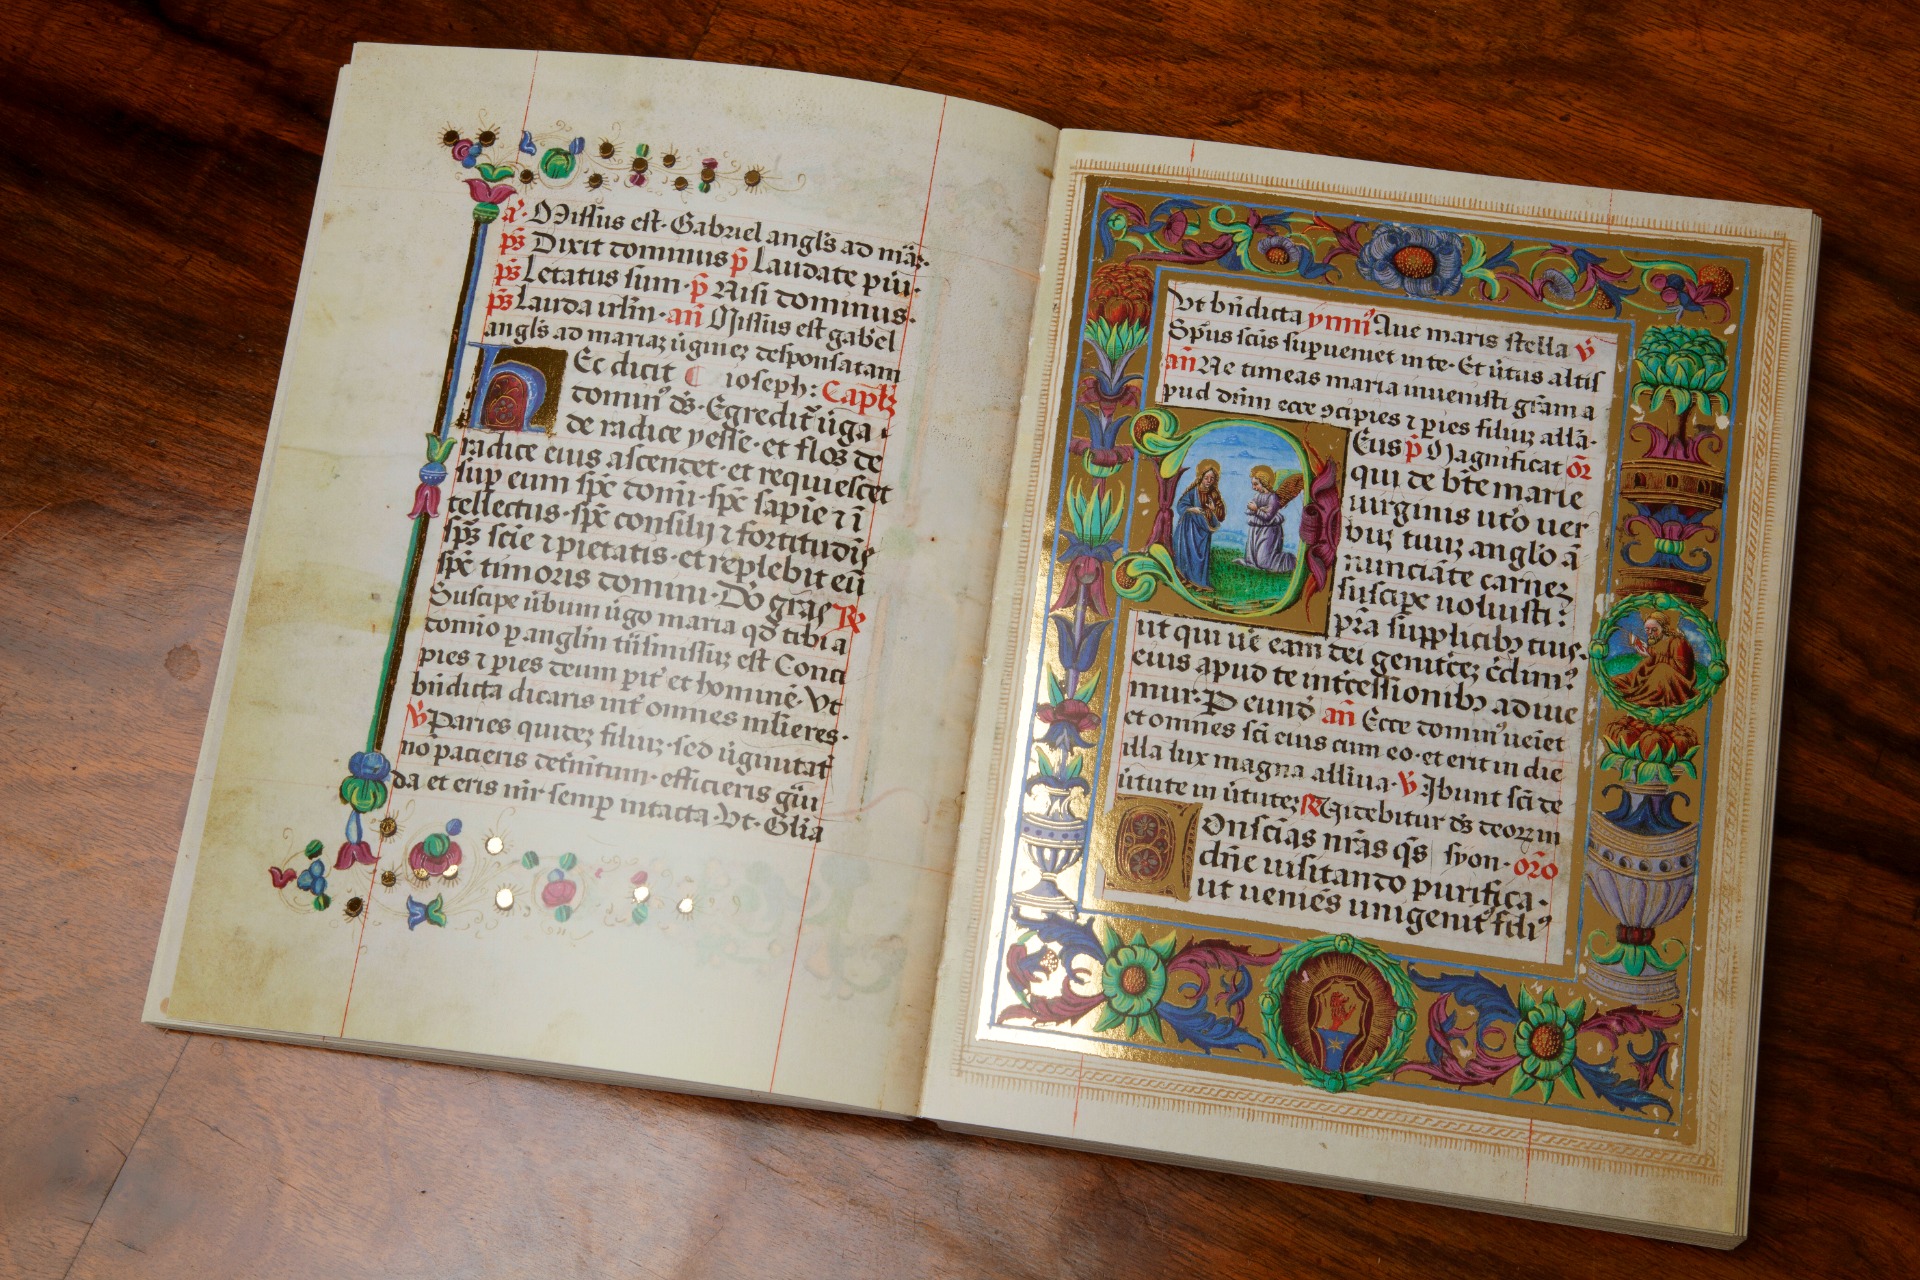 a͛. Missus est. Gabriel angl's ad mar̄.
ps̄ Dixit dominus p̄ Laudate pūi.
ps̄ Letatus sum. p̄ Nisi dominus.
ps̄ Lauda irlm̄. an̄ Missus est gabˀel
angl's ad mariaꝫ ūgineꝫ desponsatam
Ec dicit ioseph: Capl'ꝫ
dominˀ ds̄. Egredit̄ ūga.
de radice yesse. et flos de
radice eius ascendet. et requiescet
sup̱ eum spc̄ domī. spc̄ sapīe ⁊ ī
tellectus. spc̄ consilij ⁊ fortitudīs
sps̄ scīe ⁊ pietatis. et replebit eū
spc̄ timoris domini. Dō grās ℟
Suscipe ūbum ūgo maria qd̄ tibi a
domīo ꝑ angl̄m
pies ⁊ pies deum pit̄ et hominē. Vt
bn̄dicta dicaris int̄ omnes ml̄ieres.
℣ Paries quideꝫ filiuꝫ. sed ūginitat̄
no pacieris det̄nitum. efficieris gūi
da et eris mr̄ semꝑ intacta. Vt. Glīa
Vt bn̄dicta ymn̄ˀ Aue maris stella ℣
Sp̄us scūs suꝑueniet in te. Et ūtus altis
an̄ Ne timeas maria inuenisti grām a
pud dn̄m ecce ꝯcipies ⁊ pies filiuꝫ allā.
Eus p̄ Magnificat or̄
qui de bt̄e marie
uirginis utˀo uer
buꝫ tuuꝫ anglˀo ā
nunciāte carneꝫ
suscipe uoluisti:
pr̄a supplicibꝫ tuis.
ut qui ūe eam dei genit̄ceꝫ c̄dimˀ:
eius apud te int̄cessionibꝫ adiuue
mur. P eund̄ an̄ Ecce dominˀ ueīet
et omnes scī eius cum eo. et erit in die
illa lux magna allīua. ℣ Ibunt scī de
ūtute in ūtuteꝫ ℟ Uidebitur ds̄ deorum
Onscīas nr̄as qs̄ syon. oro
dn̄e uisitando purifica.
ut ueniēs unigenitˀ filiˀ